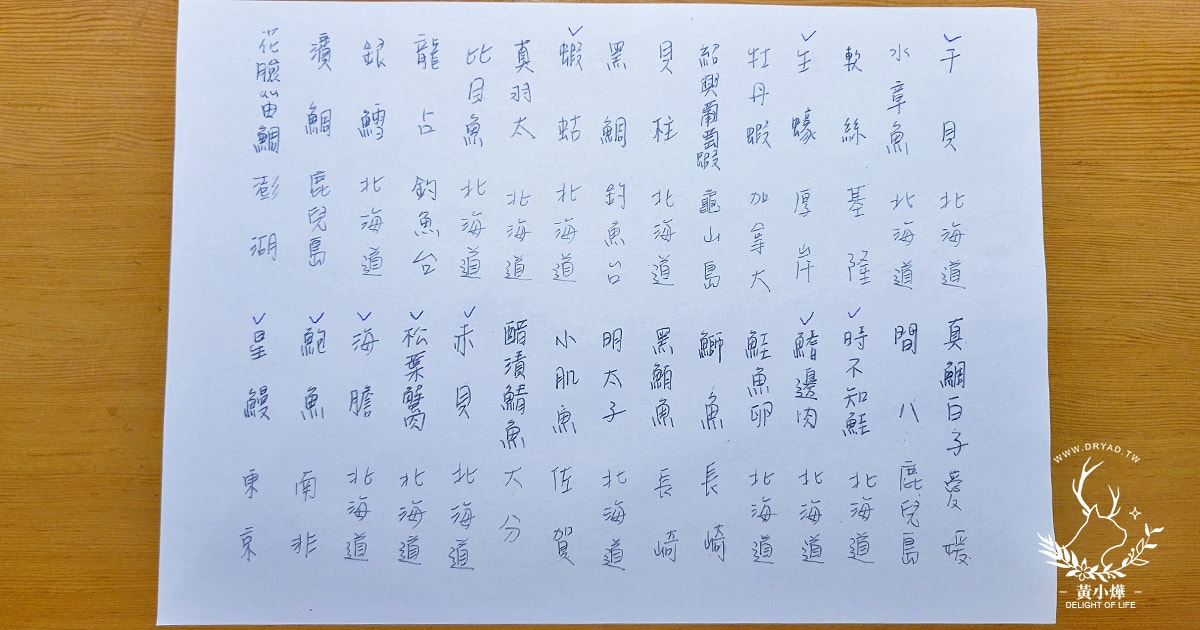 ✓干貝 北海道
水章魚 北海道
軟絲 基隆
✓生蠔 厚岸
牡丹蝦 加拿大
紹興葡萄蝦 龜山島
貝柱 北海道
黑鯛 釣魚台
✓蝦蛄 北海道
真羽太 北海道
比目魚 北海道
龍占 釣魚台
銀鱈 北海道
鯛 鹿兒島
花臉笛鯛 澎湖
真鯛白子 愛媛
間八 鹿兒島
✓時不知鮭 北海道
✓鰭邊肉 北海道
鮭魚卵 北海道
鰤魚 長崎
黑鮪魚 長崎
明太子 北海道
小肌魚 佐賀
醋漬鯖魚 大分
✓赤貝 北海道
✓松葉蟹肉 北海道
✓海膽 北海道
✓鮑魚 南非
✓星鰻 東京
WWW.DRYAD.TW
黃小燁
DELIGHT OF LIFE